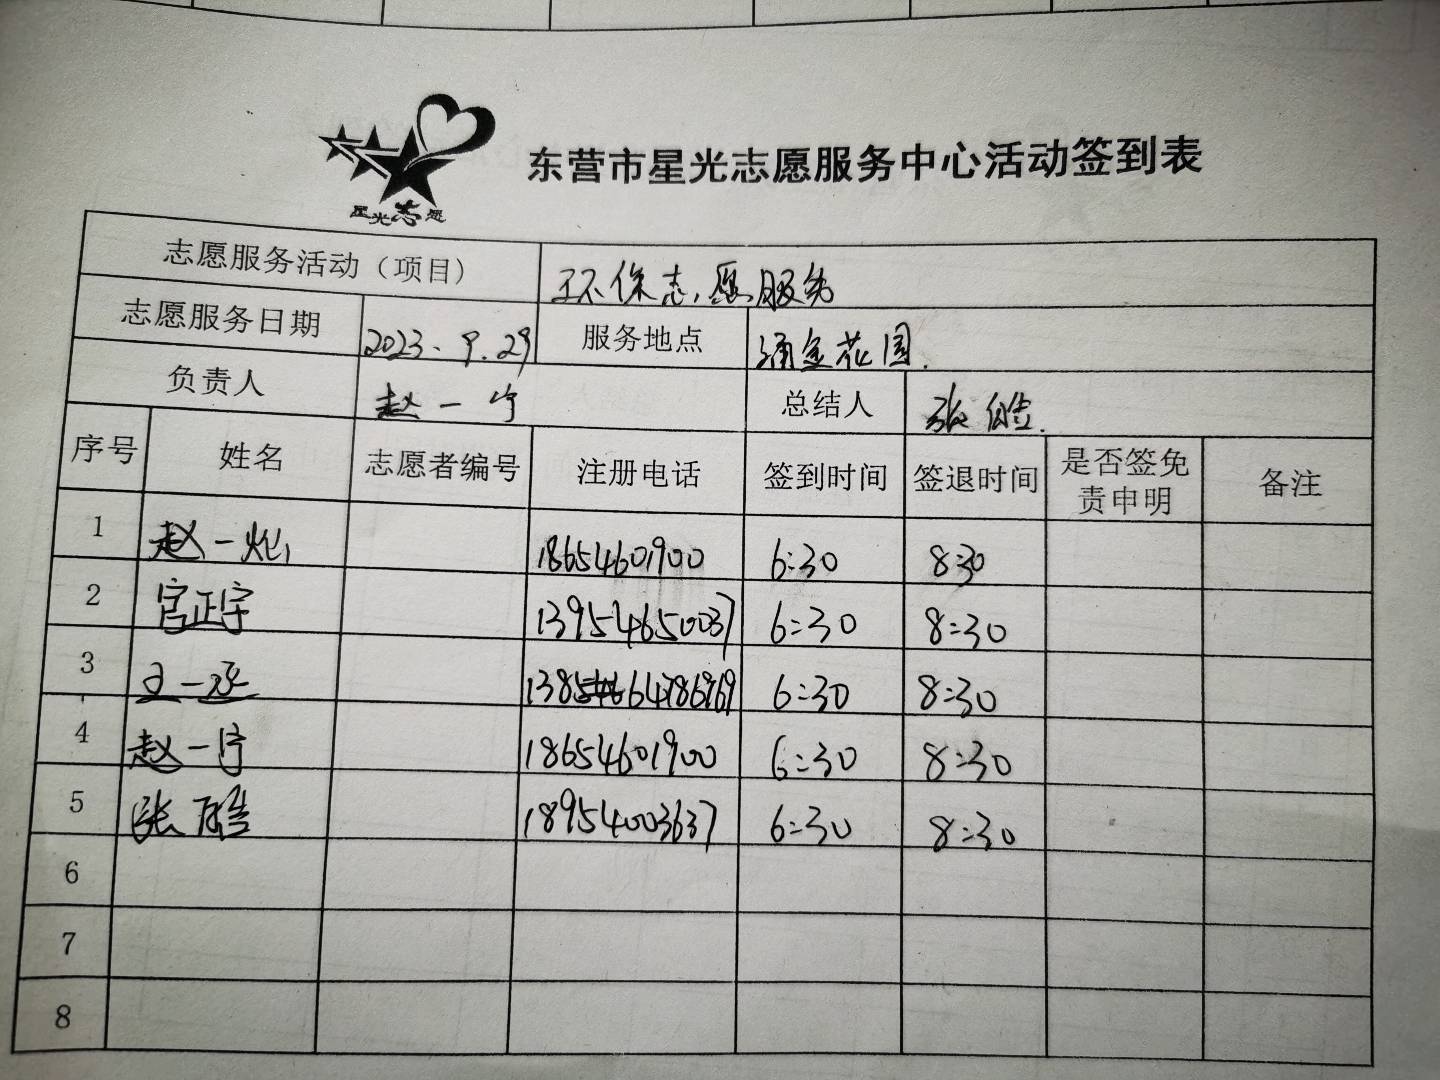 星光志愿
东营市星光志愿服务中心活动签到表
志愿服务活动（项目） 环保志愿服务
志愿服务日期 2023.9.29 服务地点 涌金花园.
负责人 赵一宁 总结人 张皓.
序号 姓名 志愿者编号 注册电话 签到时间 签退时间 是否签免责申明 备注
1 赵一 18654601900 6:30 8:30
2 宫正宇 13954650037 6:30 8:30
3 王一丞 6:30 8:30
4 赵一宁 18654601900 6:30 8:30
5 张皓 18954003637 6:30 8:30
6
7
8